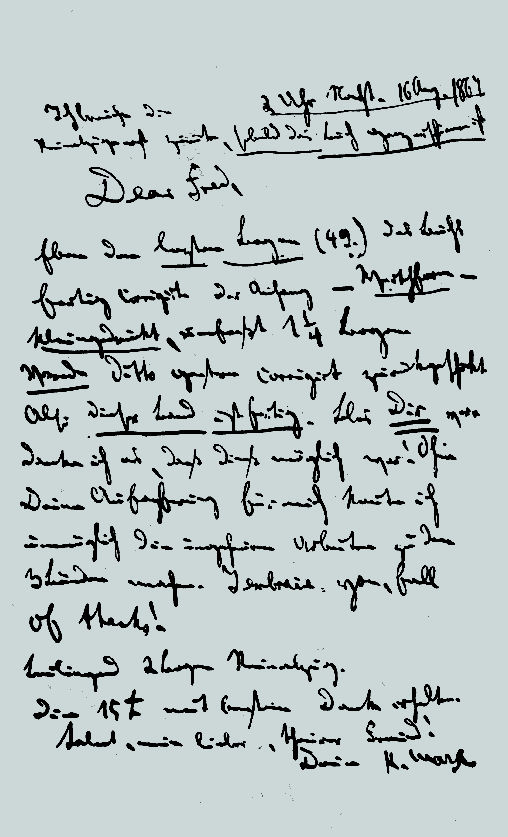 2 Uhr Nacht. 16 Aug. 1867
Ich brauche die
Reinabzüge erst zurück, sobald das Buch ganz erschienen ist
Dear Fred,
Eben den letzten Bogen (49.) des Buchs
fertig corrigirt. Der Anhang – Werthform –
kleingedruckt, umfaßt 1 1/4 Bogen.
Vorrede ditto gestern corrigirt zurückgeschickt.
Also dieser Band ist fertig. Blos Dir ver
danke ich es, daß dieß möglich war! Ohne
Deine Aufopferung für mich konnte ich
unmöglich die ungeheuren Arbeiten zu den
3 Bänden machen. I embrace you, full
of thanks!
Beiliegend 2 Bogen Reinabzug.
Die 15 £ mit bestem Dank erhalten.
Salut, mein lieber, theurer Freund!
Dein K. Marx